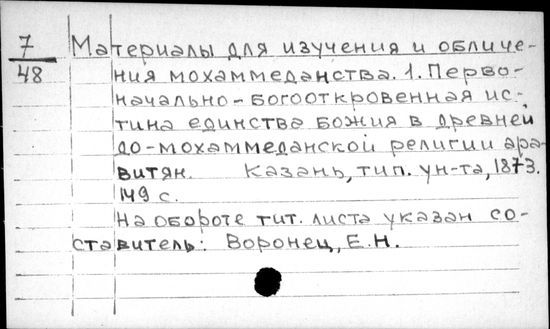 7 Материалы для изучения и обличе-
48 ния мохаммеданства. 1. Перво-
начально-богооткровенная ис-
тина единства божия в древней
до-мохаммеданской религии ара-
витян. Казань, тип. ун-та, 1873.
149 с.
На обороте тит. листа указан со-
ставитель: Воронец, Е.Н.